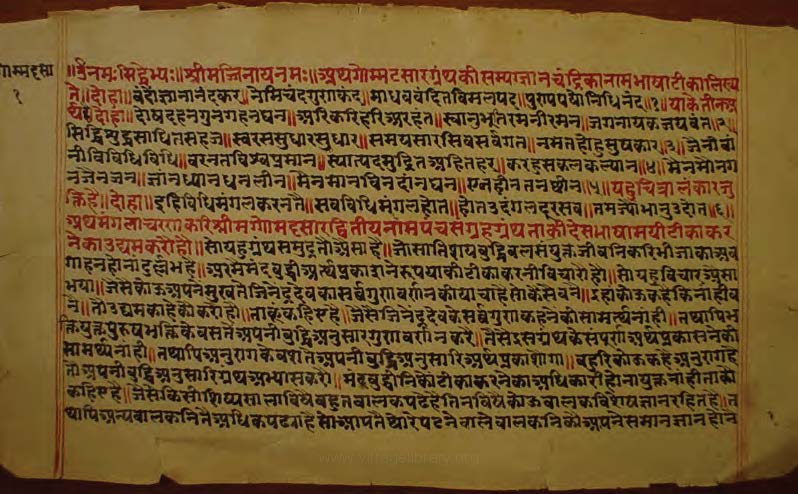 गोम्मट्टसा
१
॥ॐनमःसिद्धेभ्यः॥श्रीमज्जिनायनमः॥अथगोम्मटसारग्रंथकीसम्यग्ज्ञानचंद्रिकानामभाषाटीकालिख्य
ते॥दोहा॥बंदौंज्ञानानंदकर॥नेमिचंदगुणकंद॥माधववंदितविमलपद॥पुण्यपयोनिधिनंद॥१॥
दोषदहनगुनगहनघन॥अरिकरिहरिअरहंत॥स्वानुभूतिरमनीरमन॥जगनायकजयवंत॥२॥
सिद्धिशुद्धसाधितसहज॥स्वरससुधारसुधार॥समयसारसिवसर्वगत॥नमतहोहुसुषकार॥३॥जैनीबा
नीविविधिविधि॥बरनतविश्वप्रमान॥स्यात्पदमुद्रितअहितहर॥करहुसकलकल्यान॥४॥मैंनमौंनग
नजैनजन॥ज्ञानध्यानधनलीन॥मैनमानविनदानघन॥एनहीनतनछीन॥५॥यहुचित्रालंकारजु
क्तिहै॥दोहा॥इहिविधिमंगलकरनतैं॥सबविधिमंगलहोत॥होतउदंगलदूरसब॥तमज्यौंभानुउदोत॥६॥
अथमंगलाचरणकरिश्रीमग्गोम्मट्टसारद्वितीयनामपंचसंग्रहग्रंथताकीदेसभाषामयीटीकाकर
नेकाउद्यमकरोहौं॥सोयहुग्रंथसमुद्रतौऐसाहै॥जोसातिशयबुद्धिबलसंयुक्तजीवनिकरिभीजाकाअव
गाहनहोनादुर्लभहै॥अरमैंमंदबुद्धीअर्थप्रकाशनेरूपयाकीटीकाकरनीविचारोंहों॥सोयहुविचारऐसा
भया॥जैसेकोऊअपनेमुखतैंजिनेंद्रदेवकासर्वगुणवर्णनकीयाचाहैसोकैसेबनै॥इहांकोऊकहैकिनाहीब
नै॥तौउद्यमकाहेकौंकरोहौ॥ताकूंकहिएहै॥जैसेंजिनेंद्रदेवकेसर्वगुणकहनेकीसामर्थ्यनाही॥तथापिभ
क्तियुक्तपुरुषभक्तिकेवसतैंअपनीबुद्धिअनुसारगुणवर्णनकरै॥तैसैंइसग्रंथकेसंपूर्णअर्थप्रकासनेकी
सामर्थ्यनाही॥तथापिअनुरागकेवशतैंअपनीबुद्धिअनुसारिअर्थप्रकाशोंगा॥बहुरिकोऊकहैअनुरागहै
तौअपनीबुद्धिअनुसारिग्रंथअभ्यासकरौ॥मंदबुद्धीनिकौंटीकाकरनेकाअधिकारीहोनायुक्तनाहीताकौं
कहिएहै॥जैसेंकिसीशिष्यसालाविषैंबहुतबालकपढैहैंतिनविषैंकोऊबालकविशेषज्ञानरहितहै॥त
थापिअन्यबालकनितैंअधिकपढ्याहैसोआपतैंथोरेपढनेवालेबालकनिकौंअपनेसमानज्ञानहोने